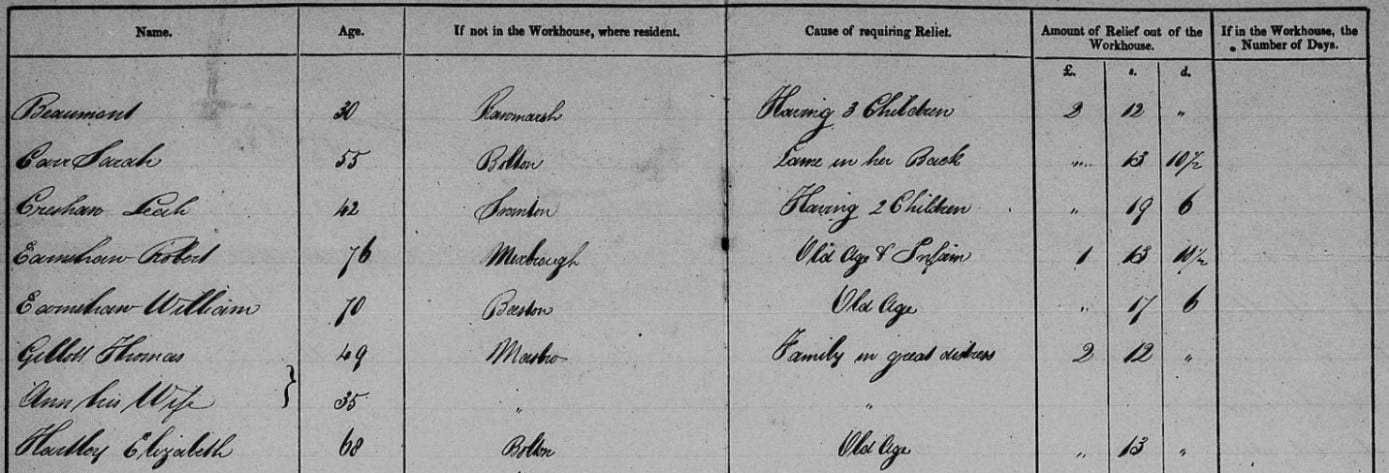 Name. Age. If not in the Workhouse, where resident. Cause of requiring Relief. Amount of Relief out of the Workhouse. If in the Workhouse, the Number of Days.
£. s. d.
Beaumont 30 Rawmarsh Having 3 Children 2 12 "
Carr Sarah 55 Bolton Lame in her Back " 13 10½
Creshaw 42 Having 2 Children " 19 6
Earnshaw Robert 76 Mexbrough Old Age & Infirm 1 13 10½
Earnshaw William 70 Old Age " 17 6
Gillott Thomas 49 Masbro Family in great distress 2 12 "
Ann his Wife } 35 " "
Hartley Elizabeth 68 Bolton Old Age " 13 "